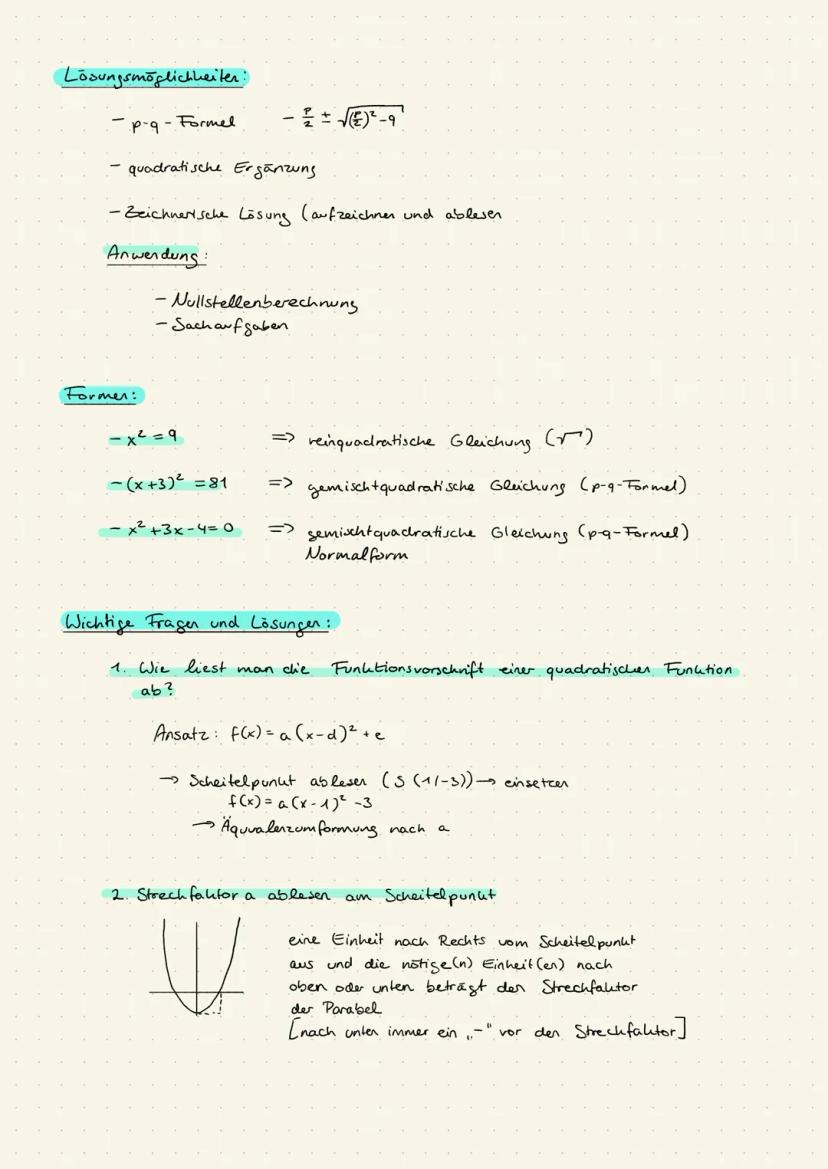 Lösungsmöglichkeiten:
- p-q-Formel - p/2 ± √((p/2)² - q)
- quadratische Ergänzung
- Zeichnerische Lösung (aufzeichnen und ablesen
Anwendung:
- Nullstellenberechnung
- Sachaufgaben
Formen:
- x² = 9 => reinquadratische Gleichung (√)
- (x+3)² = 81 => gemischtquadratische Gleichung (p-q-Formel)
- x² + 3x - 4 = 0 => gemischtquadratische Gleichung (p-q-Formel)
Normalform
Wichtige Fragen und Lösungen:
1. Wie liest man die Funktionsvorschrift einer quadratischen Funktion
ab?
Ansatz: f(x) = a (x-d)² + e
→ Scheitelpunkt ablesen (S (1/-3)) → einsetzen
f(x) = a(x-1)² -3
→ Äquivalenzumformung nach a
2. Streckfaktor a ablesen am Scheitelpunkt
eine Einheit nach Rechts vom Scheitelpunkt
aus und die nötige(n) Einheit(en) nach
oben oder unten beträgt den Streckfaktor
der Parabel
[nach unten immer ein „-" vor den Streckfaktor]